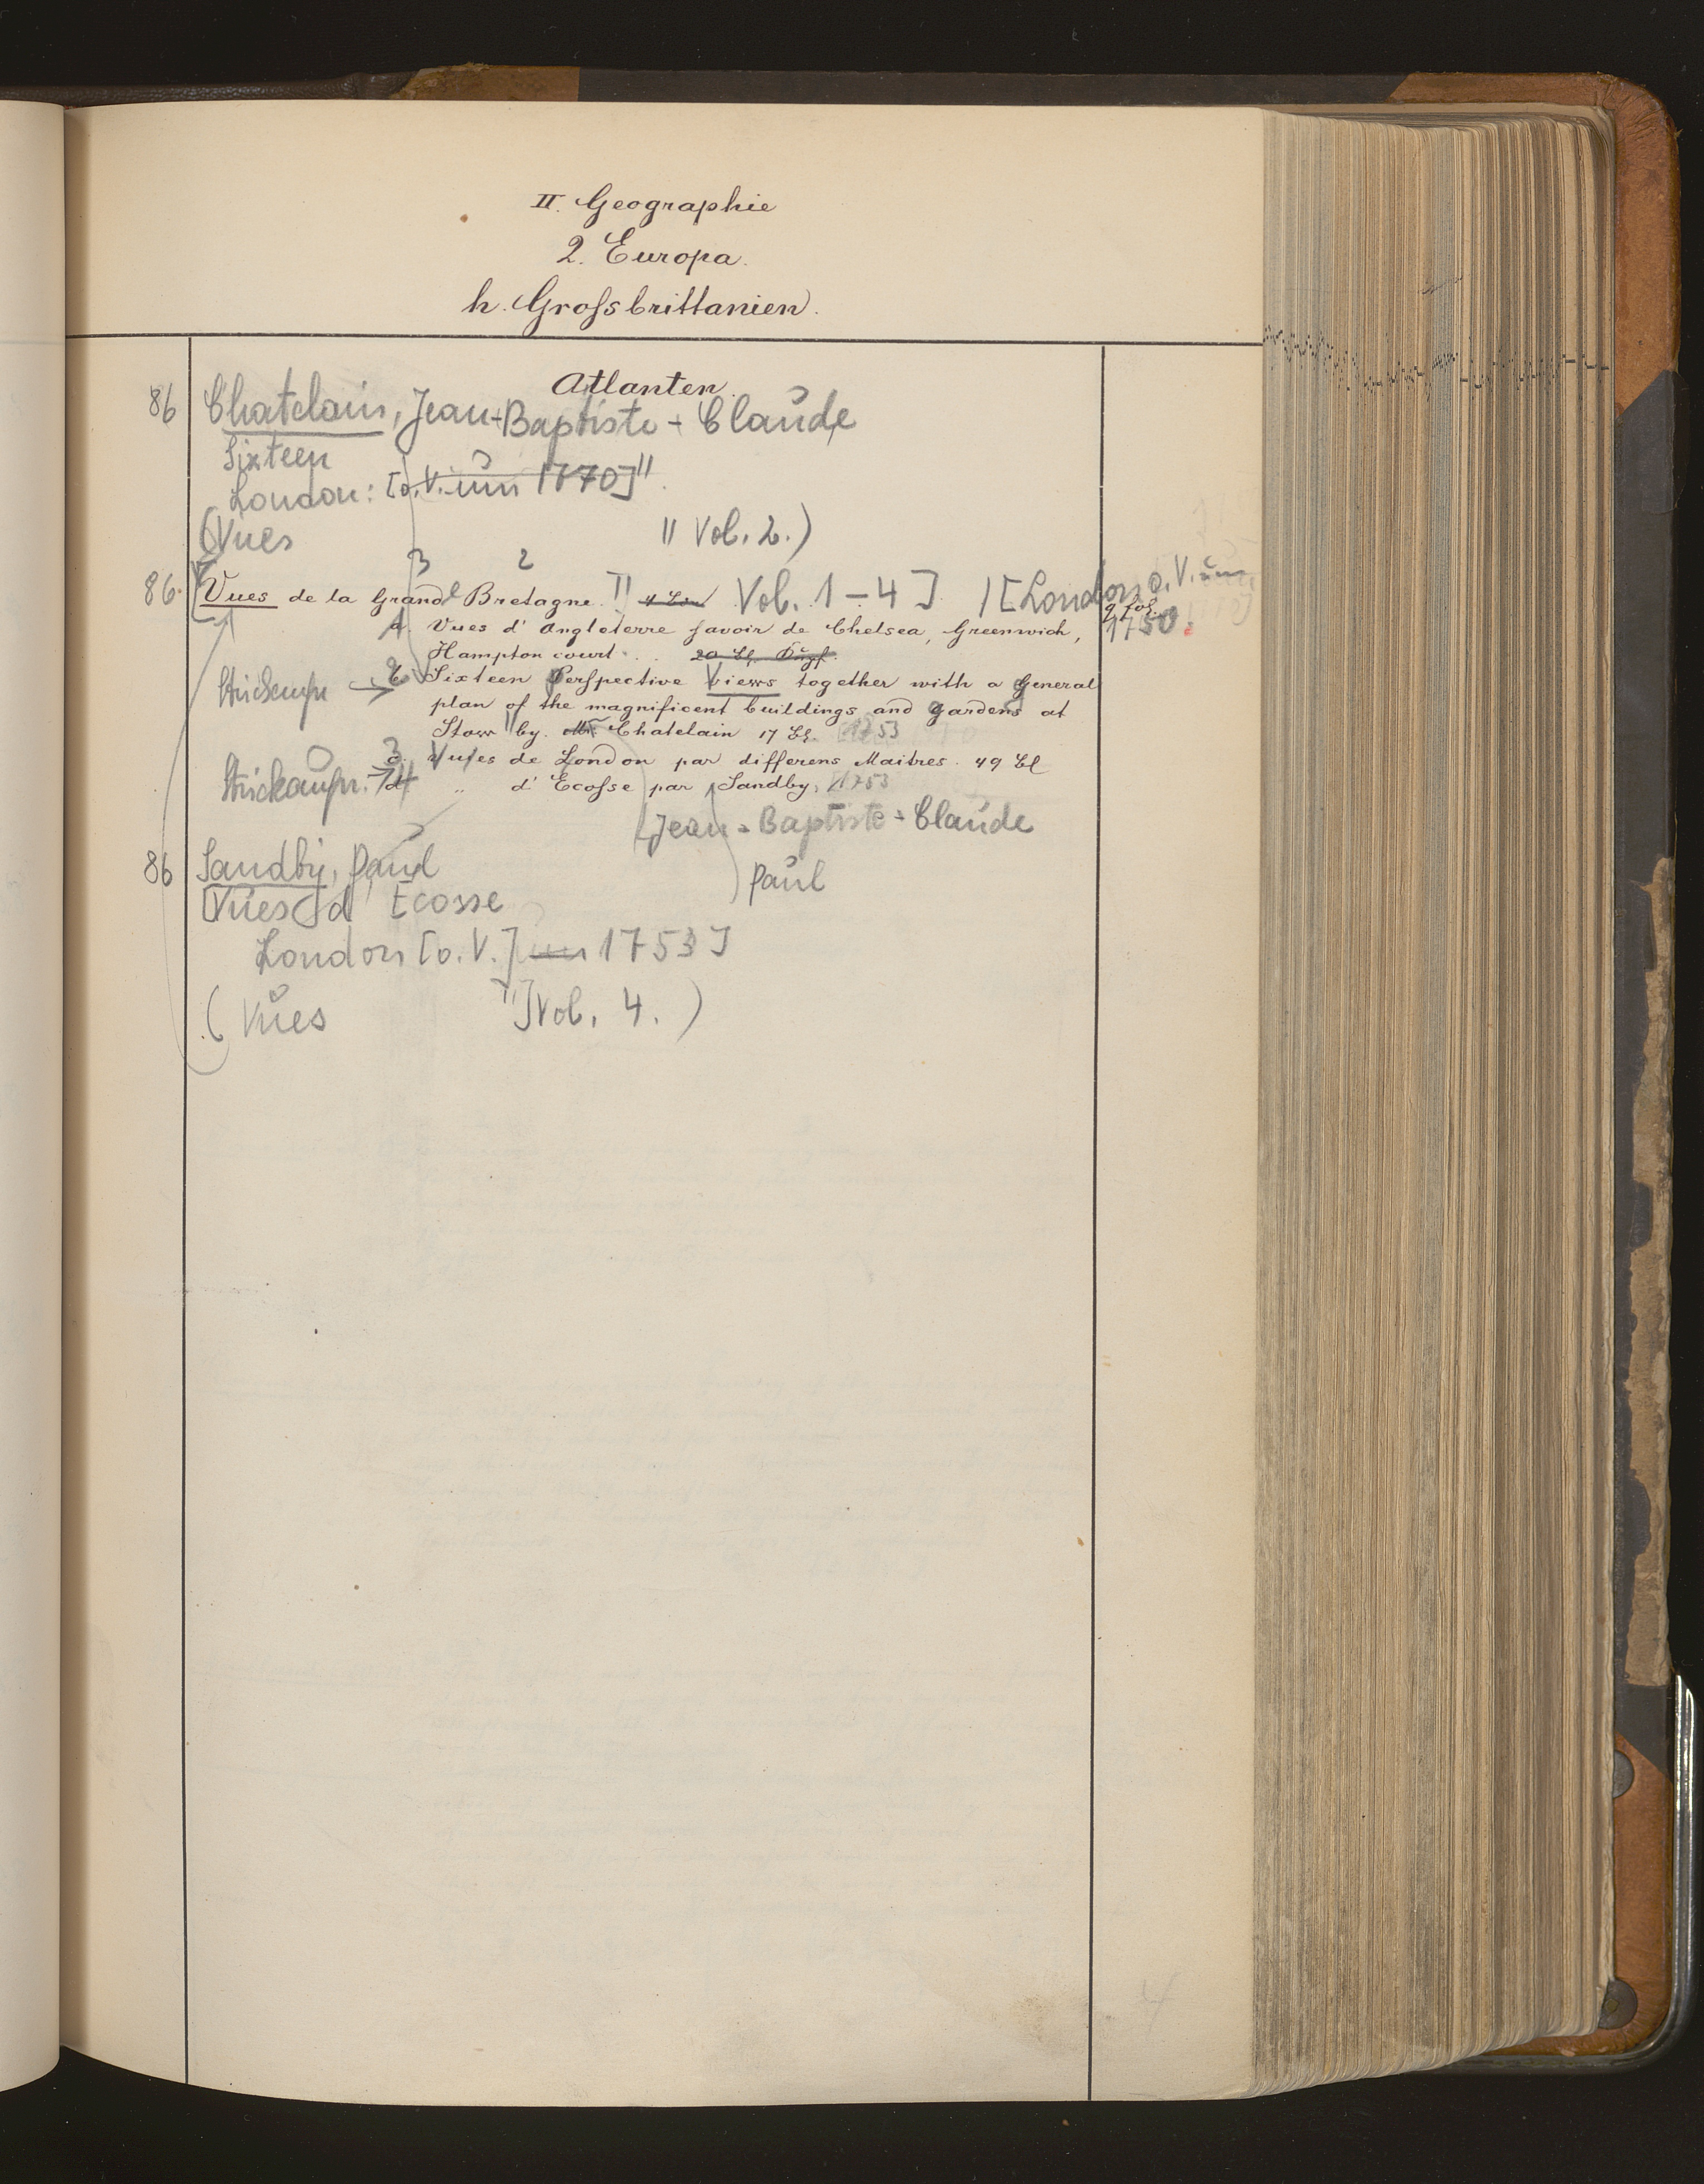 II. Geographie
2. Europa.
h. Grossbrittanien.
Atlanten.
86 Chatelain, Jean-Baptiste-Claude
Sixteen
London: [o. V. um 1770]"
(Vues " Vol. 2.)
3 2
86. [Vues de la Grande Bretagne. Vol. 1-4] / [London o. V. um
q fol.
1750.
1. Vues d' Angleterre savoir de Chelsea, Greenwich,
Hampton court. 20 Bl. Kupf.
2. Sixteen Perspective Views together with a General
plan of the magnificent buildings and gardens at
Stow by. Mr. Chatelain 17 Bl. 1753
3. Vues de London par differens Maitres. 49 Bl
4 " d' Ecosse par Sandby, 1753
Jean-Baptiste-Claude
86 Sandby, Paul
Paul
[Vues] d' Ecosse
London [o. V.] um 1753]
(Vues "] Vol. 4.)
4